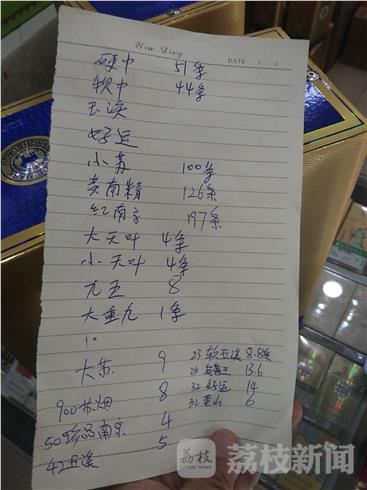 Hua Ding
DATE / /
硬中 51条
软中 44条
玉溪
好运
小苏 100条
黄南精 126条
红南京 197条
大天叶 4条
小天叶 4条
九五 8
大重九 1条
10
大苏 9 23软玉溪 8.8条
900苏烟 8 13.6
50珍品南京 4 32好运 14
42玉溪 5 32黄山 6
荔枝
荔枝新闻